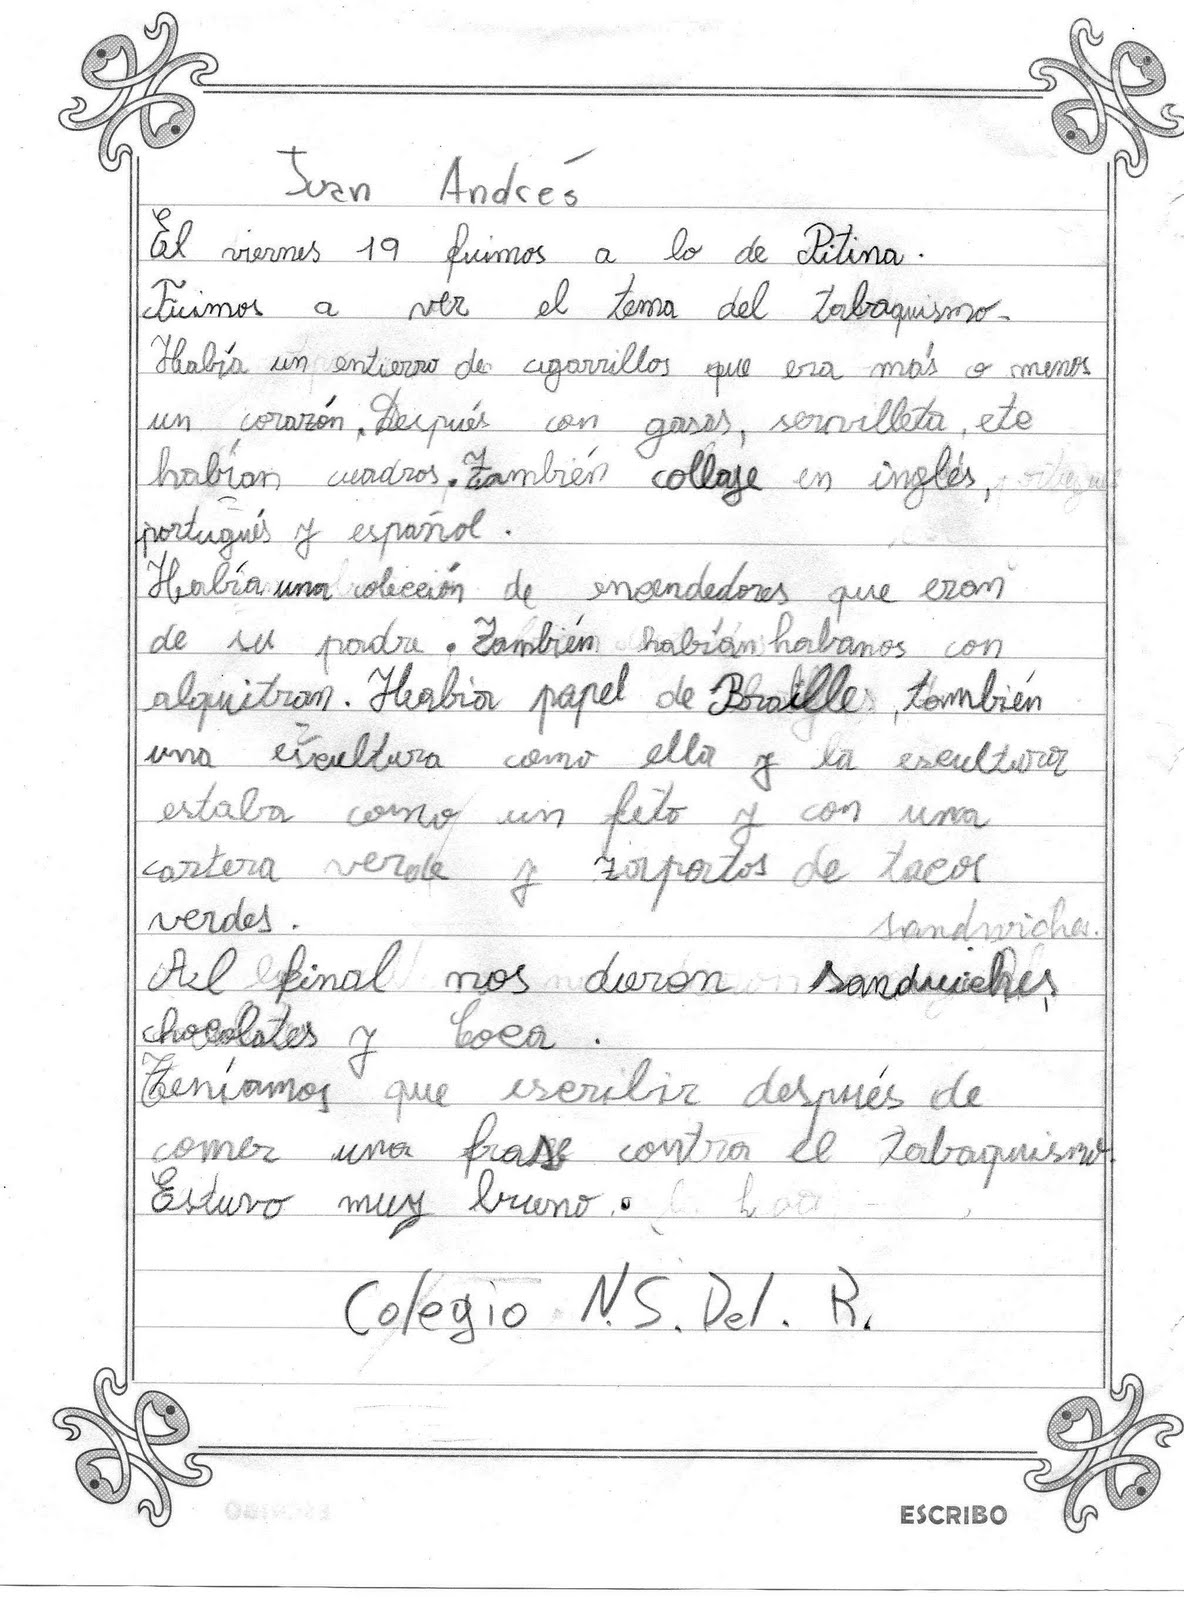 Juan Andrés
El viernes 19 fuimos a lo de Pitina.
Fuimos a ver el tema del tabaquismo.
Había un entierro de cigarrillos que era más o menos
un corazón. Después con gasas, servilleta, etc
habían cuadros. También collage en inglés,
portugués y español.
Había una colección de encendedores que eran
de su padre. También habían habanos con
alquitran. Había papel de Braille, también
una escultura como ella y la escultura
estaba como un feto y con una
cartera verde y zapatos de tacos
verdes. sandwiches.
Al final nos daron sandwiches,
chocolates y Coca.
Teníamos que escribir después de
comer una frase contra el tabaquismo.
Estuvo muy bueno.
Colegio N.S. Del. R.
ESCRIBO